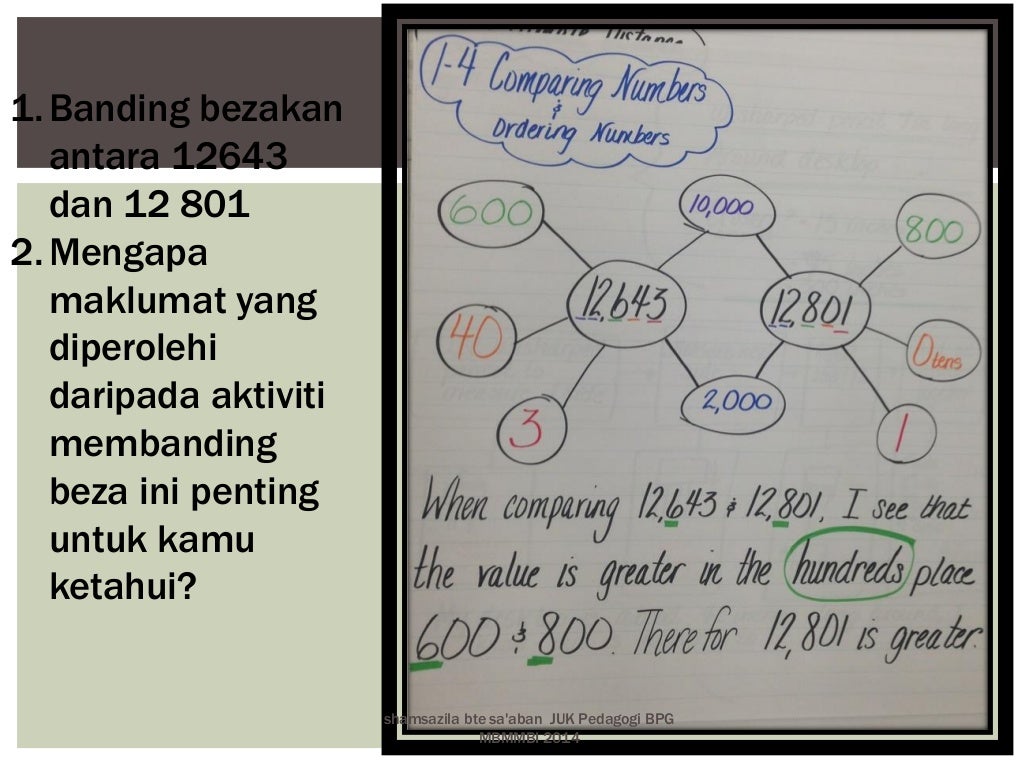 1. Banding bezakan
antara 12643
dan 12 801
2. Mengapa
maklumat yang
diperolehi
daripada aktiviti
membanding
beza ini penting
untuk kamu
ketahui?
Distance
1-4 Comparing Numbers
&
Ordering Numbers
600
10,000
800
12,643
12,801
40
0 tens
2,000
3
1
When comparing 12,643 & 12,801, I see that
the value is greater in the hundreds place
600 & 800. There for 12,801 is greater.
shamsazila bte sa'aban JUK Pedagogi BPG
MBMMBI 2014